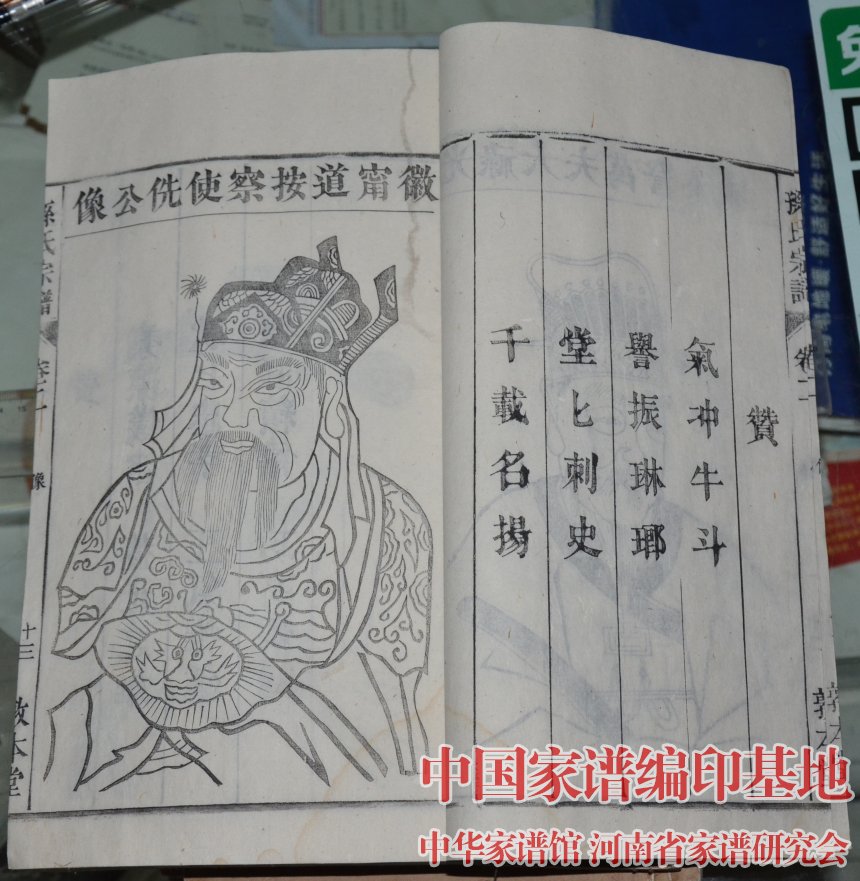 贊
氣冲牛斗
譽振琳瑯
堂匕刺史
千載名揚
孫氏宗譜
卷二
徽甯道按察使侁公像
孫氏宗譜
卷二
像
十三
敦本堂
中国家谱编印基地
中华家谱馆 河南省家谱研究会